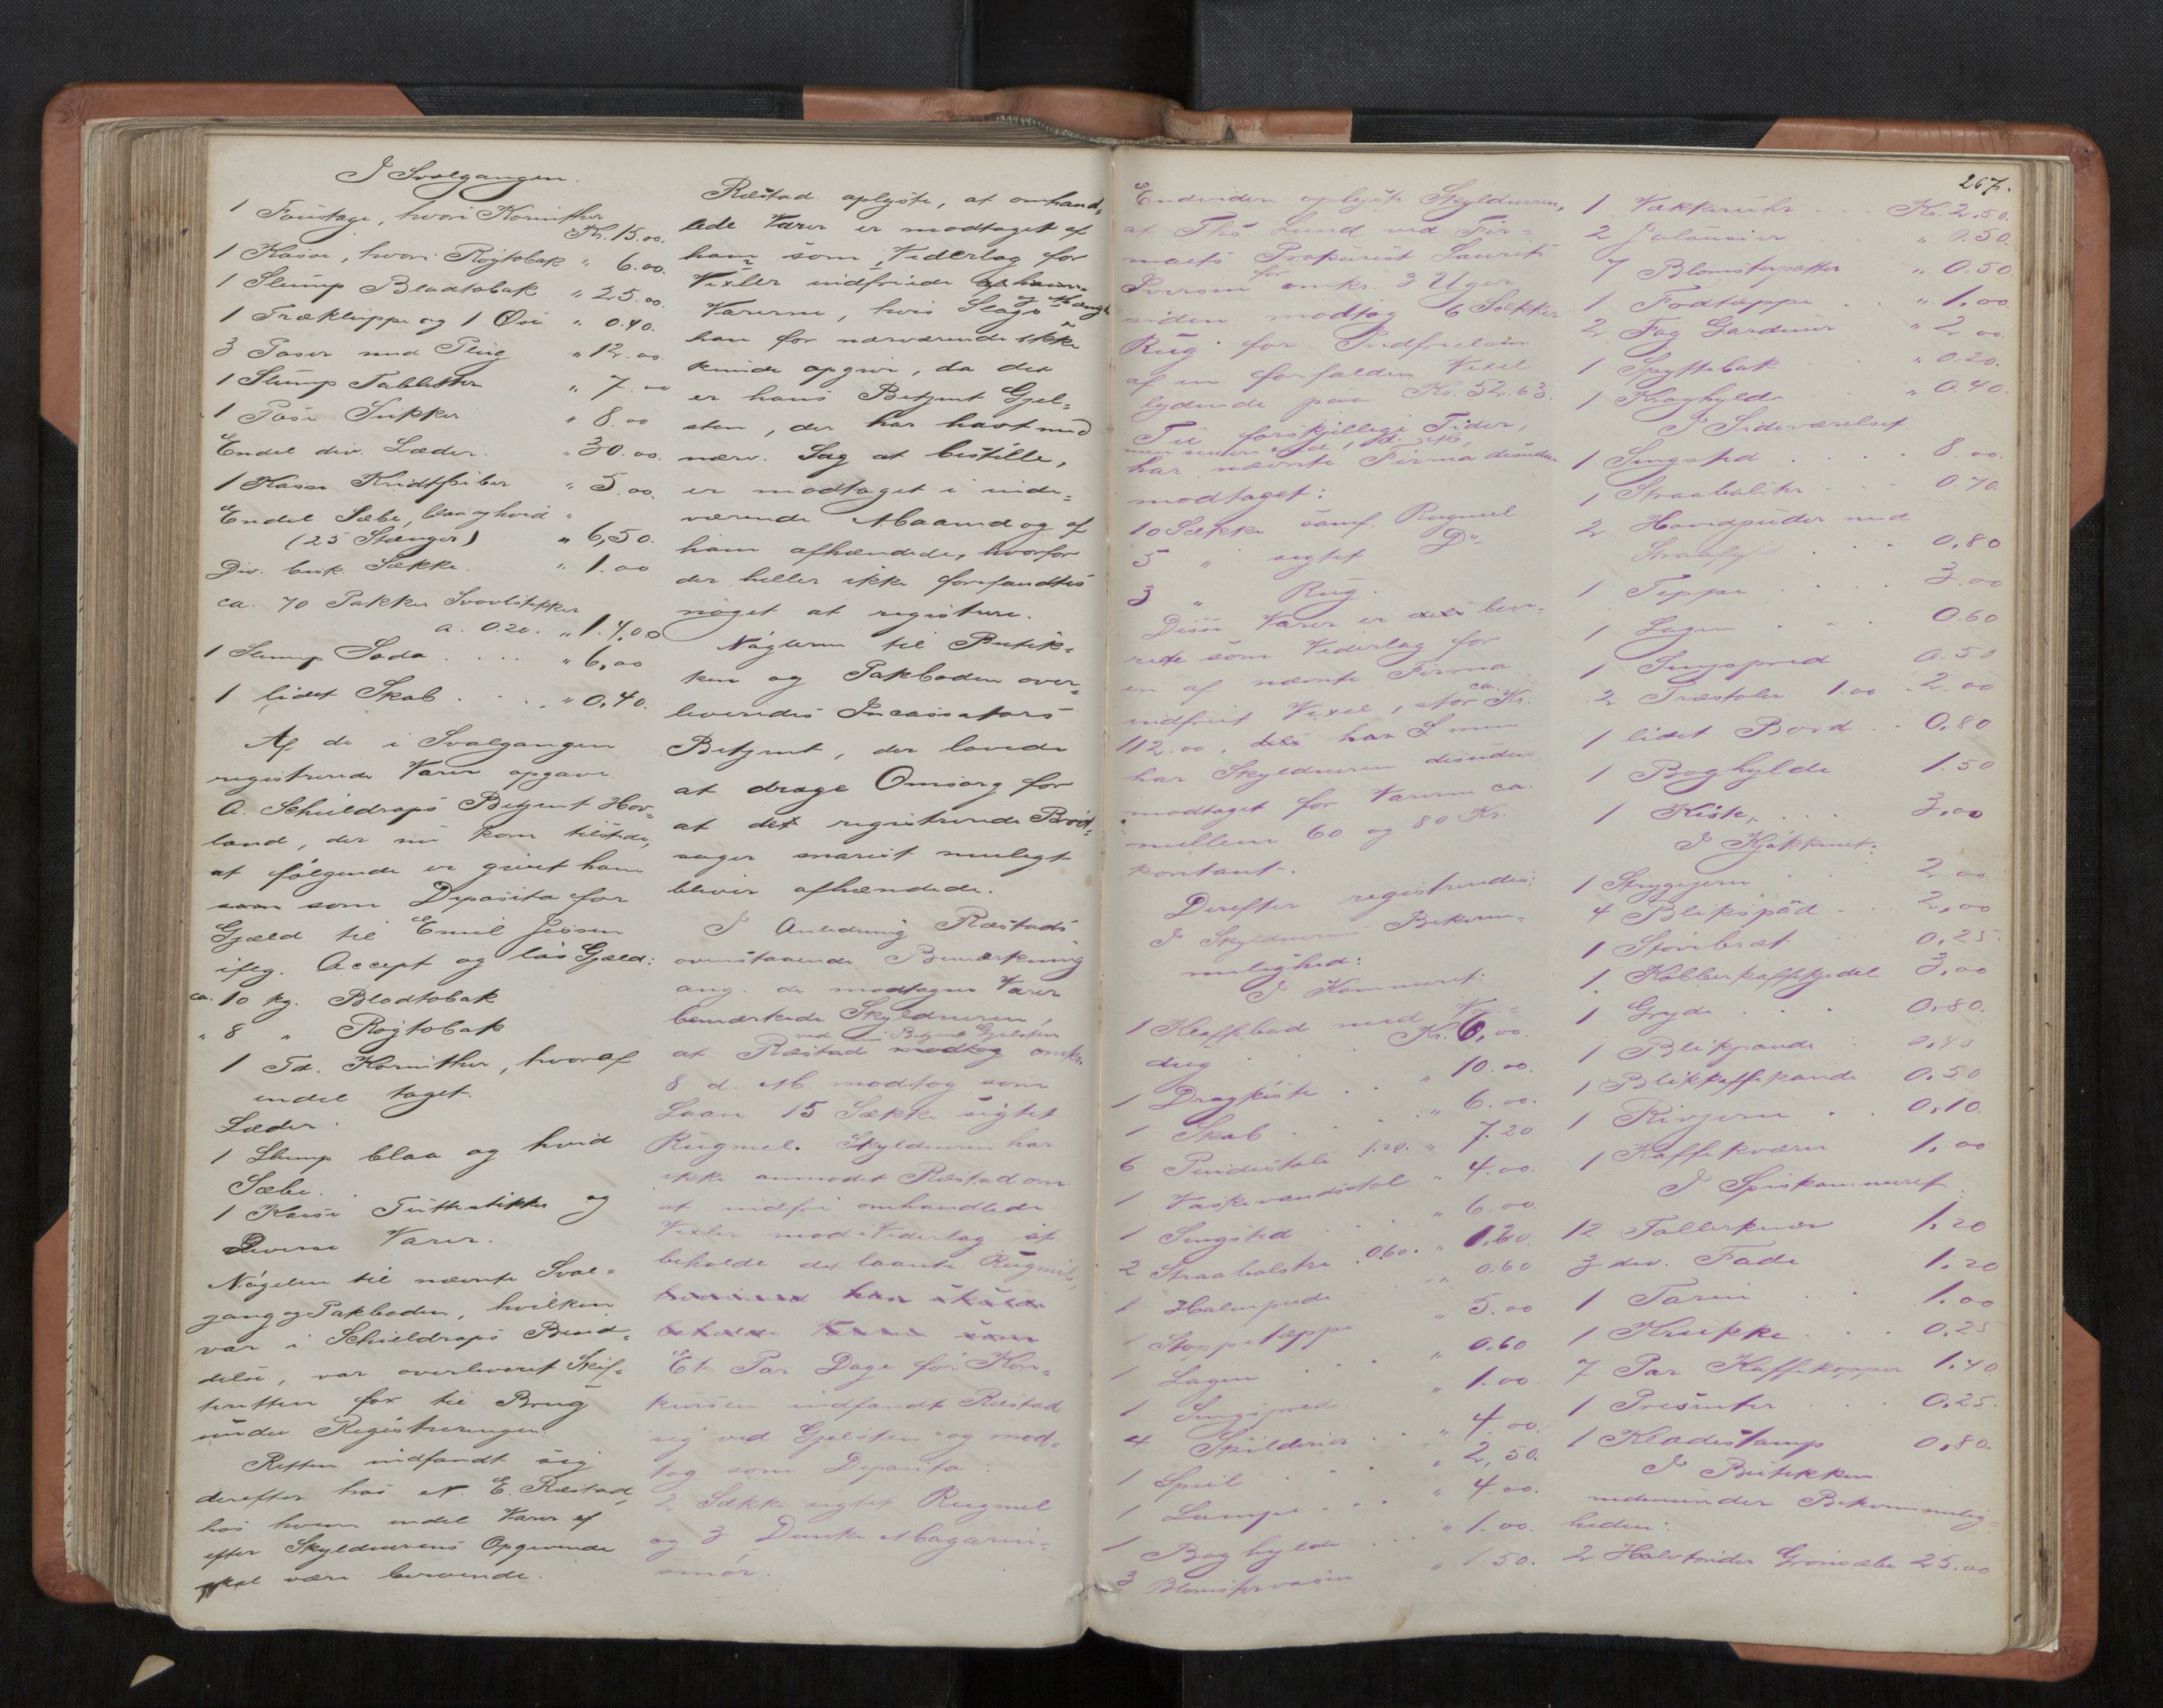 I Svalgangen.
1 Foustage, hvori Korinther
Kr. 15.00.
1 Kasse, hvori Røgtobak " 6.00.
1 Slump Bladtobak " 25.00.
1 Træklippe og 1 Øse " 0.40.
3 Poser med Pling " 12.00.
1 Slump Tabletter " 7.00
1 Pose Sukker " 8.00
Endel div. Læder. " 30.00.
1 Kasse Kridtpiber " 5.00.
Endel Sæbe, blaa og hvid "
(25 Stænger) " 6,50.
Div. bruk. Sække. " 1.00
ca. 70 Pakker Svovlstikker
a. 0.20. " 14.00
1 Slump Soda . . . . " 6,00
1 lidet Skab . . . " 0,40.
Af de i Svalgangen
registrerede Varer opgave
A. Schieldrops Betjent Hov-
land, der nu kom tilstede,
at følgende er givet ham
som som Deposita for
Gjæld til Emil Jessen
ifølg. Accept og løs Gjæld:
ca. 10 kg. Bladtobak
" 8 " Røgtobak
1 Td. Korinther, hvoraf
endel taget.
Læder.
1 Slump blaa og hvid
Sæbe.
1 Kasse Fyrstikker og
Diverse Varer.
Nøgelen til nævnte Sval-
gang og Pakboden, hvilken
var i Schieldrops Besid-
delse, var overleveret Skif-
teretten før til Brug
under Registreringen.
Retten indfandt sig
derefter hos N. E. Ræstad,
hos hvem endel Varer
efter Skyldnerens Opgivende
skal være beroende.
Ræstad oplyste, at omhand-
lede Varer er modtaget af
ham som Vederlag for
Vexler indfriede af ham.
Varerne, hvis Slags og Mængde
han for nærværende ikke
kunde opgive, da det
er hans Betjent Gjel-
sten, der har havt med
nærv. Sag at bestille,
er modtaget i inde-
værende Maaned og af
ham afhændede, hvorfor
der heller ikke forefandtes
noget at registrere.
Nøglerne til Butik-
ken og Pakboden over-
leveredes Incassators
Betjent, der lovede
at drage Omsorg for
at det registrerede Brød-
sager snarest muligt
bliver afhændede.
I Anledning Ræstads
ovenstaaende Bemærkning
ang. de modtagne Varer
bemærkede Skyldneren,
ved sin Betjent Gjelsten
at Ræstad modtog omkr.
8 d. M. modtog som
Laan 15 Sække sigtet
Rugmel. Skyldneren har
ikke anmodet Ræstad om
at indfri omhandlede
Vexler mod i Vederlag at
beholde det laante Rugmel,
han skulde
beholde som
Et Par Dage før Kon-
kursen indfandt Ræstad
sig ved Gjelsten og mod-
tog som Deposita:
2 Sække sigtet Rugmel
og 3 Dunke Magarin-
smør.
267.
Endvidere oplyste Skyldneren,
at Ths. Lund ved Fir-
maets Prokurist Laurits
Iversen for omkr. 3 Uger
siden modtog 6 Sækker
Rug for Indfrielsen
af en forfalden Vexel
lydende paa Kr. 52.63.
Til forskjellige Tider,
men senere end
har nævnte Firma desuden
modtaget:
10 Sække samf. Rugmel
5 " sigtet Do
3 " Rug.
Disse Varer er dels leve-
rede som Vederlag for
en af nævnte Firma
indfriet Vexel, stor ca. Kr.
112.00, dels har men
har Skyldneren desuden
modtaget for Varerne ca.
mellem 60 og 80 Kr.
kontant.
Derefter registreredes:
I Skyldnerens Bekvem-
melighed:
I Kammeret:
1 Klaffebord med
dug . . . Kr. 6.00.
1 Dragkiste . . " 10.00.
1 Skab . . . " 6.00.
6 Pindestole 1.20. " 7.20
1 Vaskevandsstol " 4.00.
1 Sengsted . . " 6.00.
2 Straabolstre 0.60. " 1.20.
1 Halmpude " 0.60
1 Stoppetæppe " 5.00
1 Lagen . . " 0.60
1 Sengspred " 1.00
4 Skilderier . . " 4.00.
1 Speil . . . " 2,50.
1 Lampe . . . " 4.00.
1 Boghylde . . " 1.00.
3 Blomstervaser " 1.50.
1 Vækkeruhr . . Kr. 2,50.
2 Jalousier " 0.50.
7 Blomsterpotter " 0.50.
1 Fodtæppe . . " 1.00
2 Fag Gardiner " 2.00
1 Spyttebak " 0.20.
1 Kroghylde . . " 0.40.
I Sideværelset
1 Sengsted . . . . 8.00.
1 Straabolster . . . 0.70.
2 Hovedpuder med
Straafyl . . . 0,80
1 Teppe . . . . 3.00
1 Lagen . . . 0.60
1 Sengspred 0.50
2 Træstoler 1.00 . 2.00
1 lidet Bord . . 0,80
1 Boghylde 1.50
1 Kiste, . . . 3,00
I Kjøkkenet:
1 Strygejern . . 2.00
4 Blikspand . . 2,00
1 Støvebræt 0,25.
1 Kobberkaffekjedel 3,00
1 Gryde . . . 0,80.
1 Blikpande . 0,40
1 Blikkaffekande 0.50
1 Rivjern . . 0,10.
1 Kaffekværn 1,00
I Spiskammeret
12 Tallerkener 1.20
3 div. Fade 1.20
1 Tarin . . . 1.00
1 Krukke . . . 0,25
7 Par Kaffekopper 1.40
1 Presenter . . . 0,25.
1 Kladestamp 0,80.
I Butikken
nedenunder Bekvemmelig-
heden:
2 Halvtønder Grønsæbe 25.00